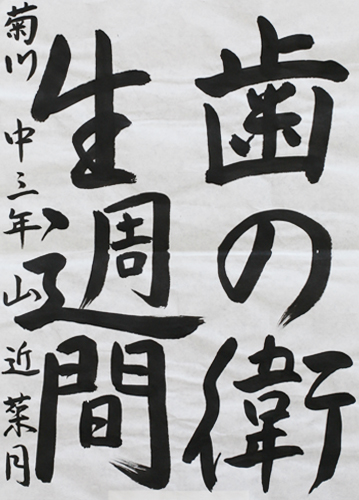 歯の衛
生週間
菊川 中三年 山近菜月